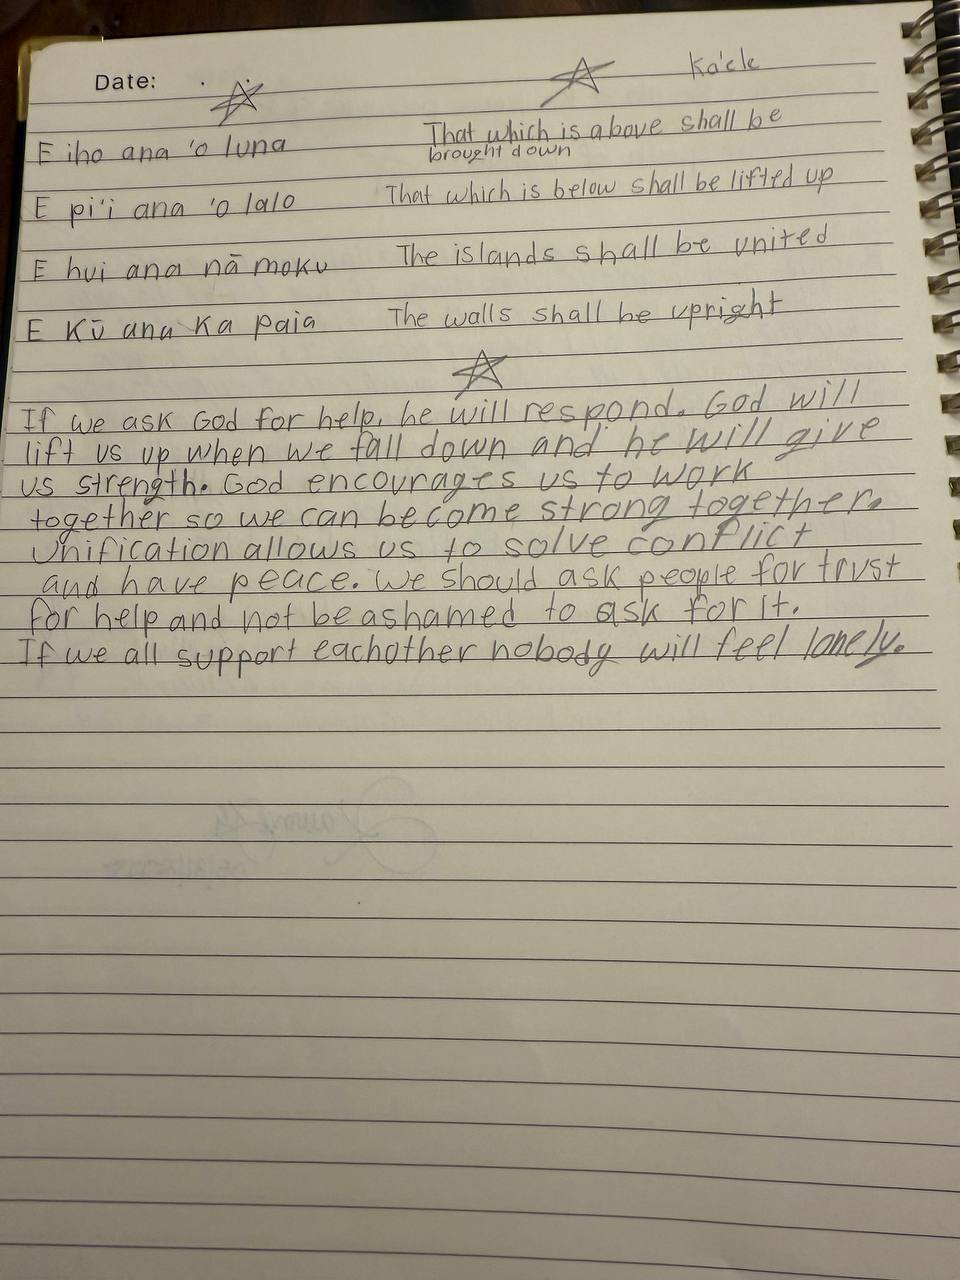 Date:
Ka'ele
E iho ana 'o luna
That which is above shall be
brought down
E pi'i ana 'o lalo
That which is below shall be lifted up
E hui ana nā moku
The islands shall be united
E Kū ana Ka paia
The walls shall be upright
If we ask God for help, he will respond. God will
lift us up when we fall down and he will give
us strength. God encourages us to work
together so we can become strong together.
Unification allows us to solve conflict
and have peace. We should ask people for trust
for help and not be ashamed to ask for it.
If we all support eachother nobody will feel lonely.